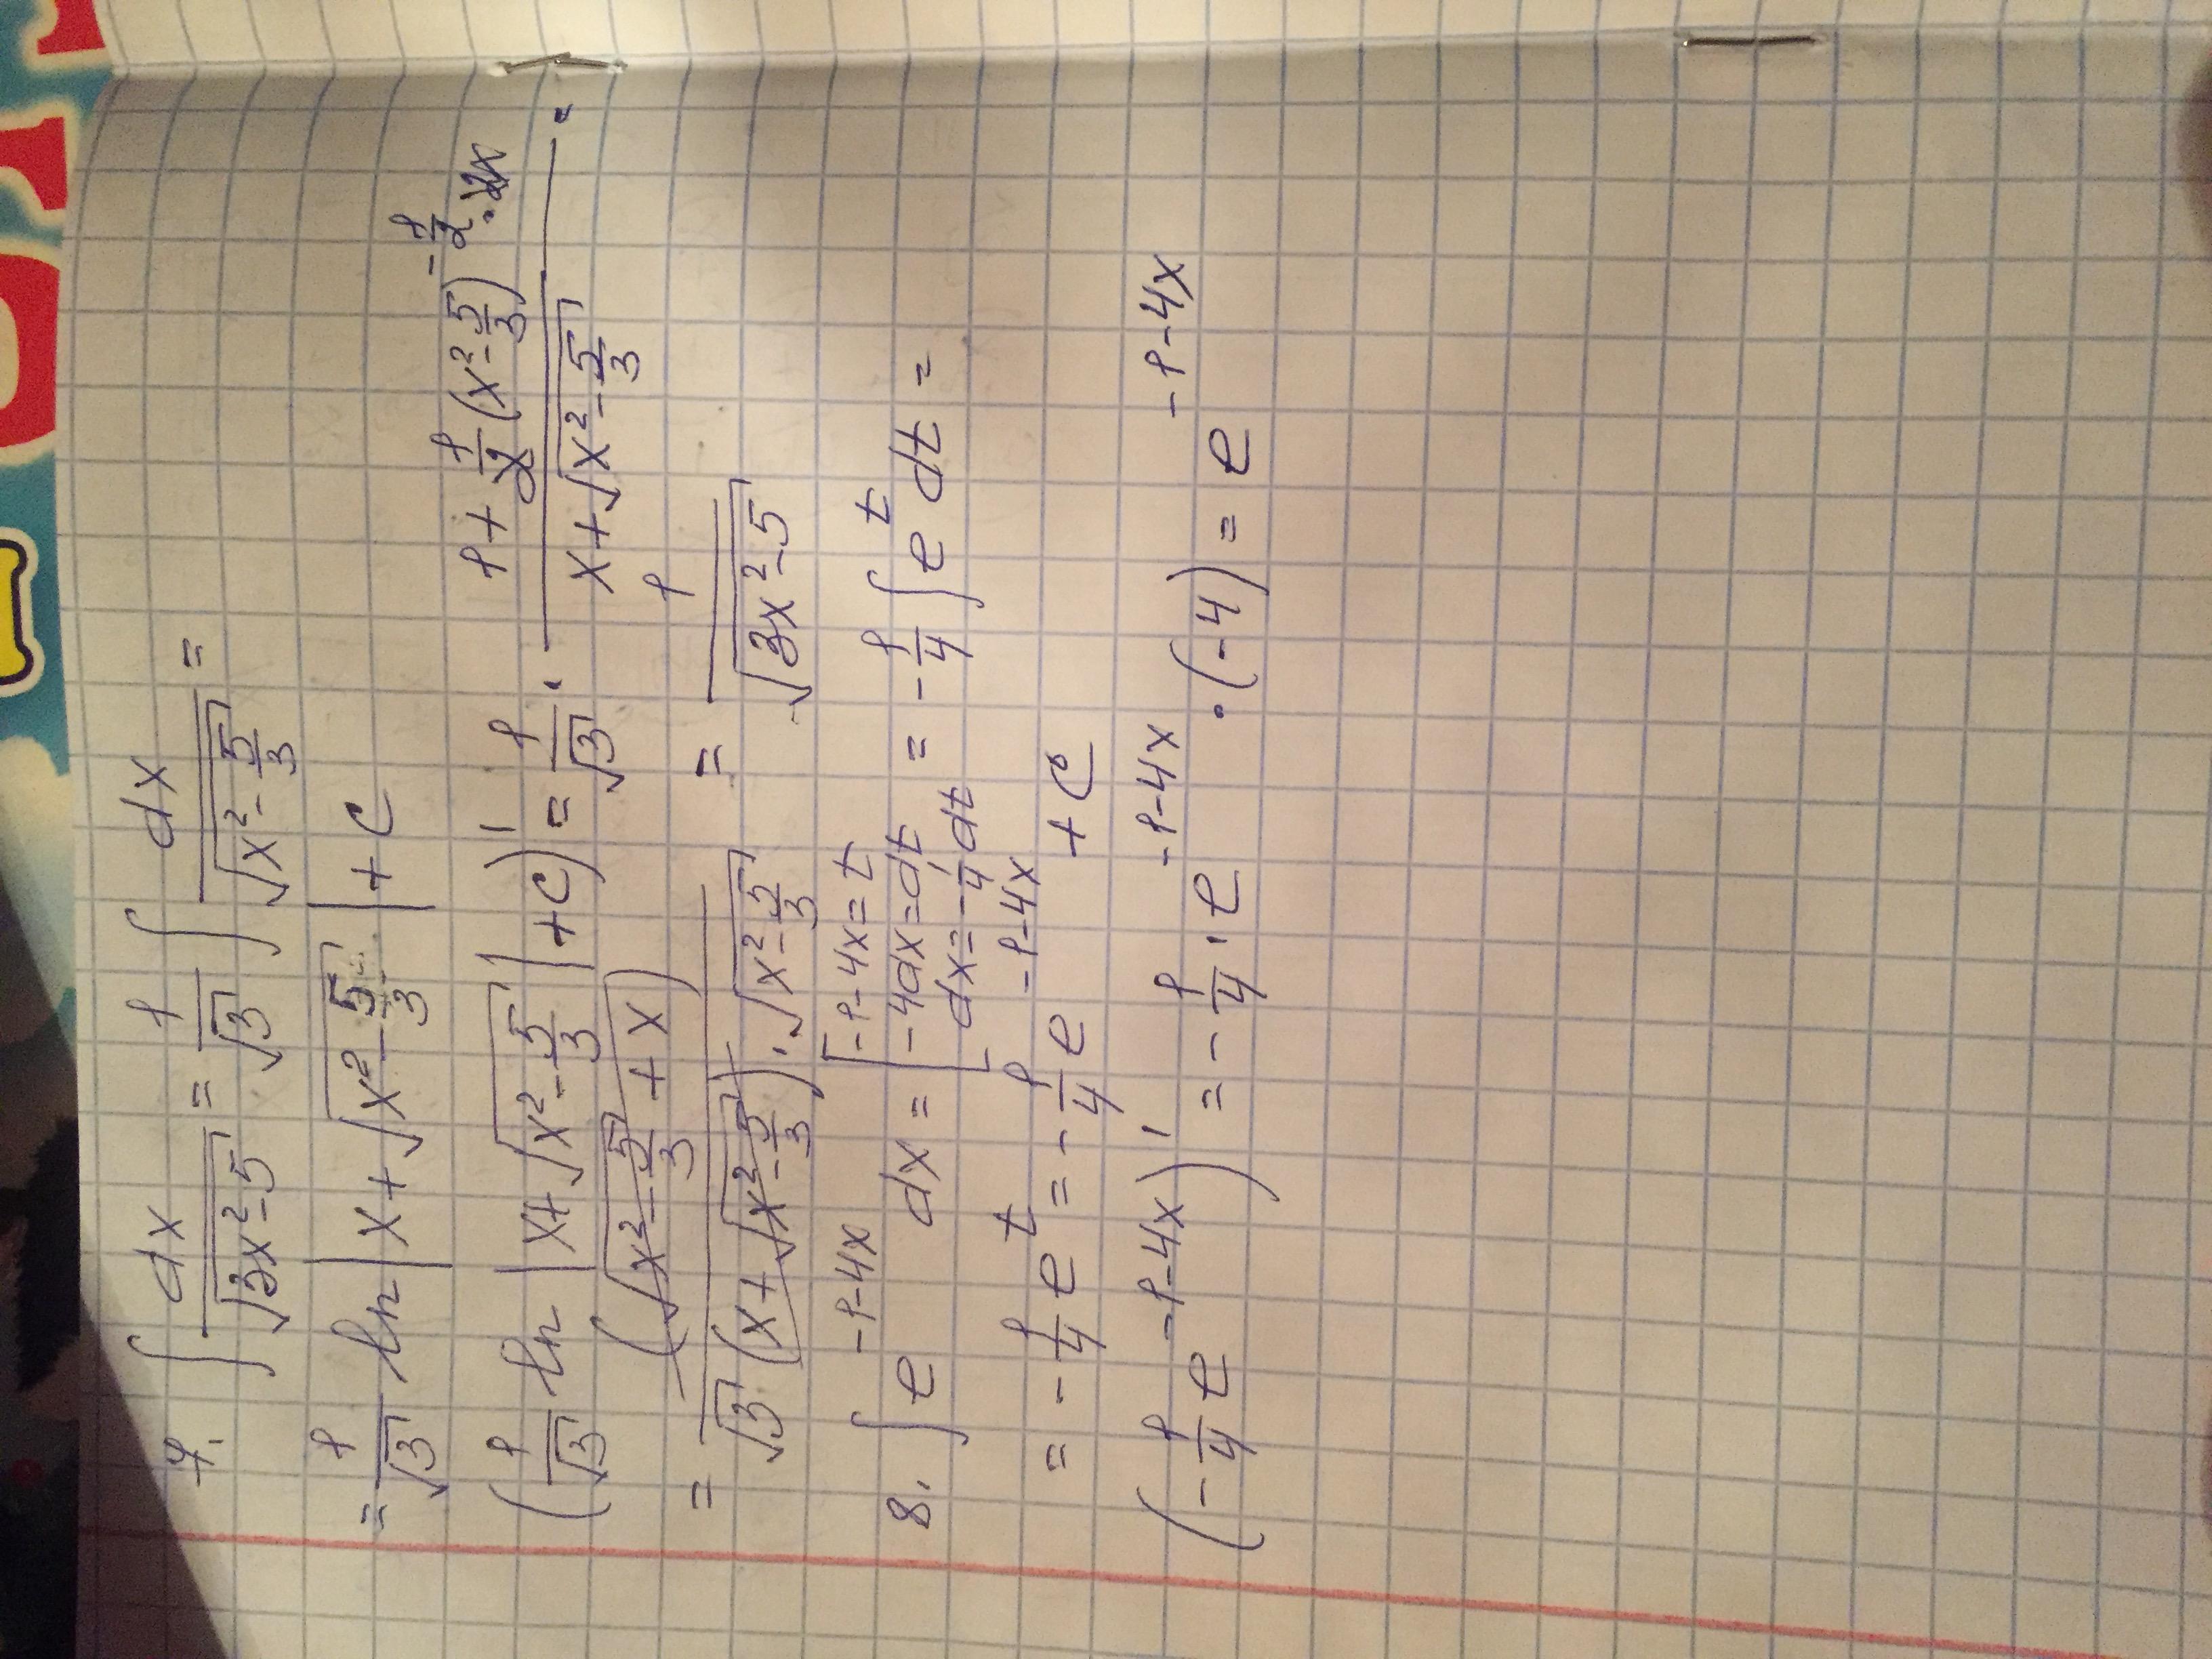 7. ∫ dx/√(3x²-5) = 1/√3 ∫ dx/√(x²-5/3) =
= 1/√3 ln |x+√(x²-5/3)| + C
(1/√3 ln |x+√(x²-5/3)| + C)' = 1/√3 · (1+1/2(x²-5/3)^(-1/2)·2x)/(x+√(x²-5/3)) =
= (√(x²-5/3)+x)/(√3(x+√(x²-5/3))·√(x²-5/3)) = 1/√(3x²-5)
8. ∫ e^(-1-4x) dx = [-1-4x=t
-4dx=dt
dx=-1/4dt] = -1/4 ∫ e^t dt =
= -1/4 e^t = -1/4 e^(-1-4x) + C
(-1/4 e^(-1-4x))' = -1/4 · e^(-1-4x) · (-4) = e^(-1-4x)